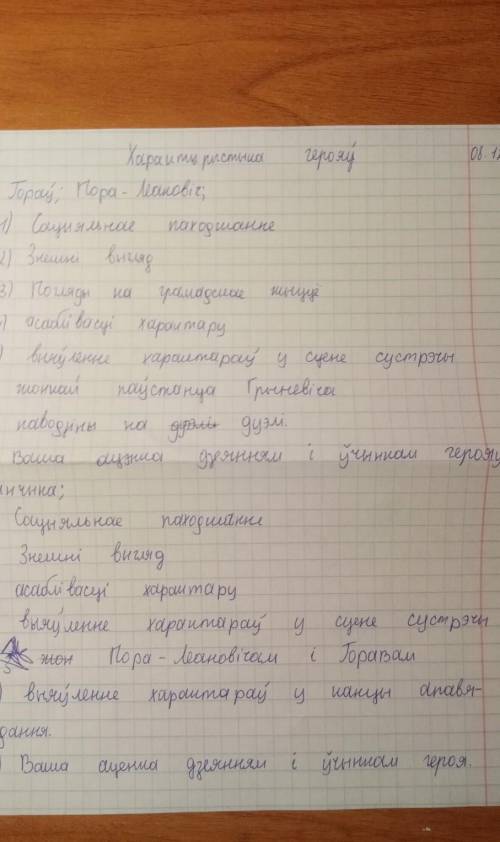 Характарыстыка герояў 06.12
Гораў; Пора-Леановіч;
1) Сацыяльнае паходжанне
2) Знешні выгляд
3) Погляды на грамадскае жыццё
) асаблівасці характару
) выяўленне характараў у сцене сустрэчы
жонкай паўстанца Грыневіча
паводзіны на дуэлі.
Ваша ацэнка дзеянням і ўчынкам герояў
анчыка;
Сацыяльнае паходжанне
Знешні выгляд
асаблівасці характару
выяўленне характараў у сцене сустрэчы
Пора-Леановічам і Горавам
) выяўленне характараў у канцы апавя-
дання.
) Ваша аценка дзеянням і ўчынкам героя.